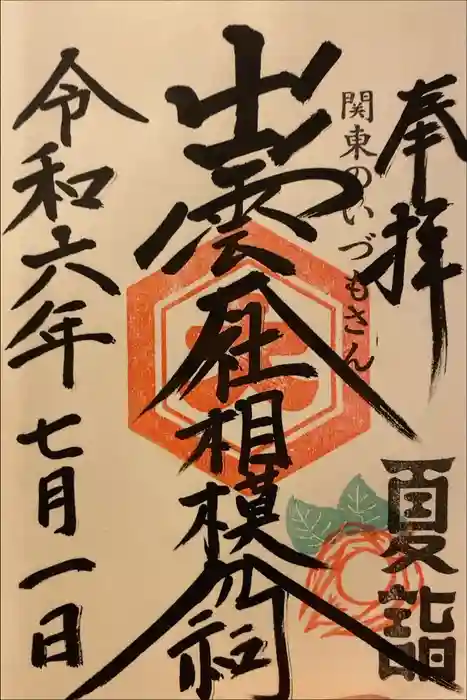 奉拝
夏詣
関東のいづもさん
出雲大社相模分祠
令和六年七月一日